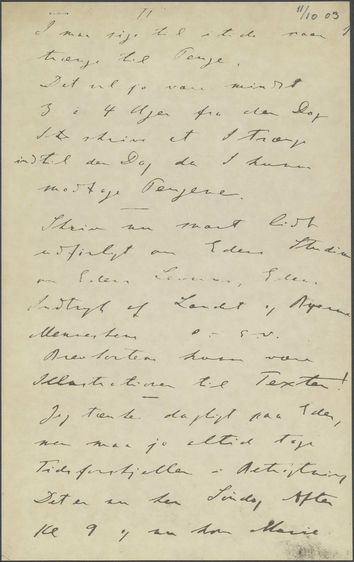 11
11/10 03
I maa sige til i tide naar I
trænge til Penge.
Det vil jo vare mindst
3 à 4 Uger fra den Dag
I skrive at I træng
indtil den Dag da I kunne
modtage Pengene.
Skriv nu snart lidt
udførligt om Eders Studier
om Eders Levevis, Eders
Indtryk af Landet og Byerne
Menneskene o-s.v.
Brevkortene kunne være
Illustrationer til Texten!
Jeg tænker dagligt paa Eder,
men maa jo altid tage
Tidsforskjellen i Betragtning
Det er nu her Søndag Aften
Kl 9 og nu kom Marie